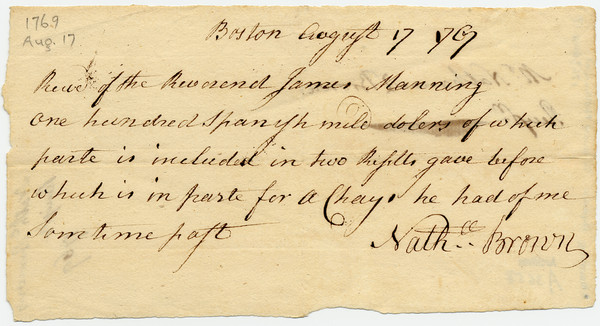 1769
Aug. 17
Boston August 17 1769
Recvd of the Reverend James Manning
one hundred Spanish mild dolers of which
parte is included in two Resitts gave before
which is in parte for a Chays he had of me
Som time past
Nathll Brown